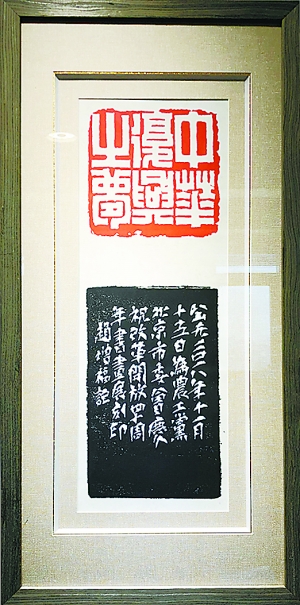 中華
復興
之夢
公元二〇一八年十一月
十五日為農工黨
北京市委會慶
祝改革開放四十周
年書畫展刻印
趙增福記